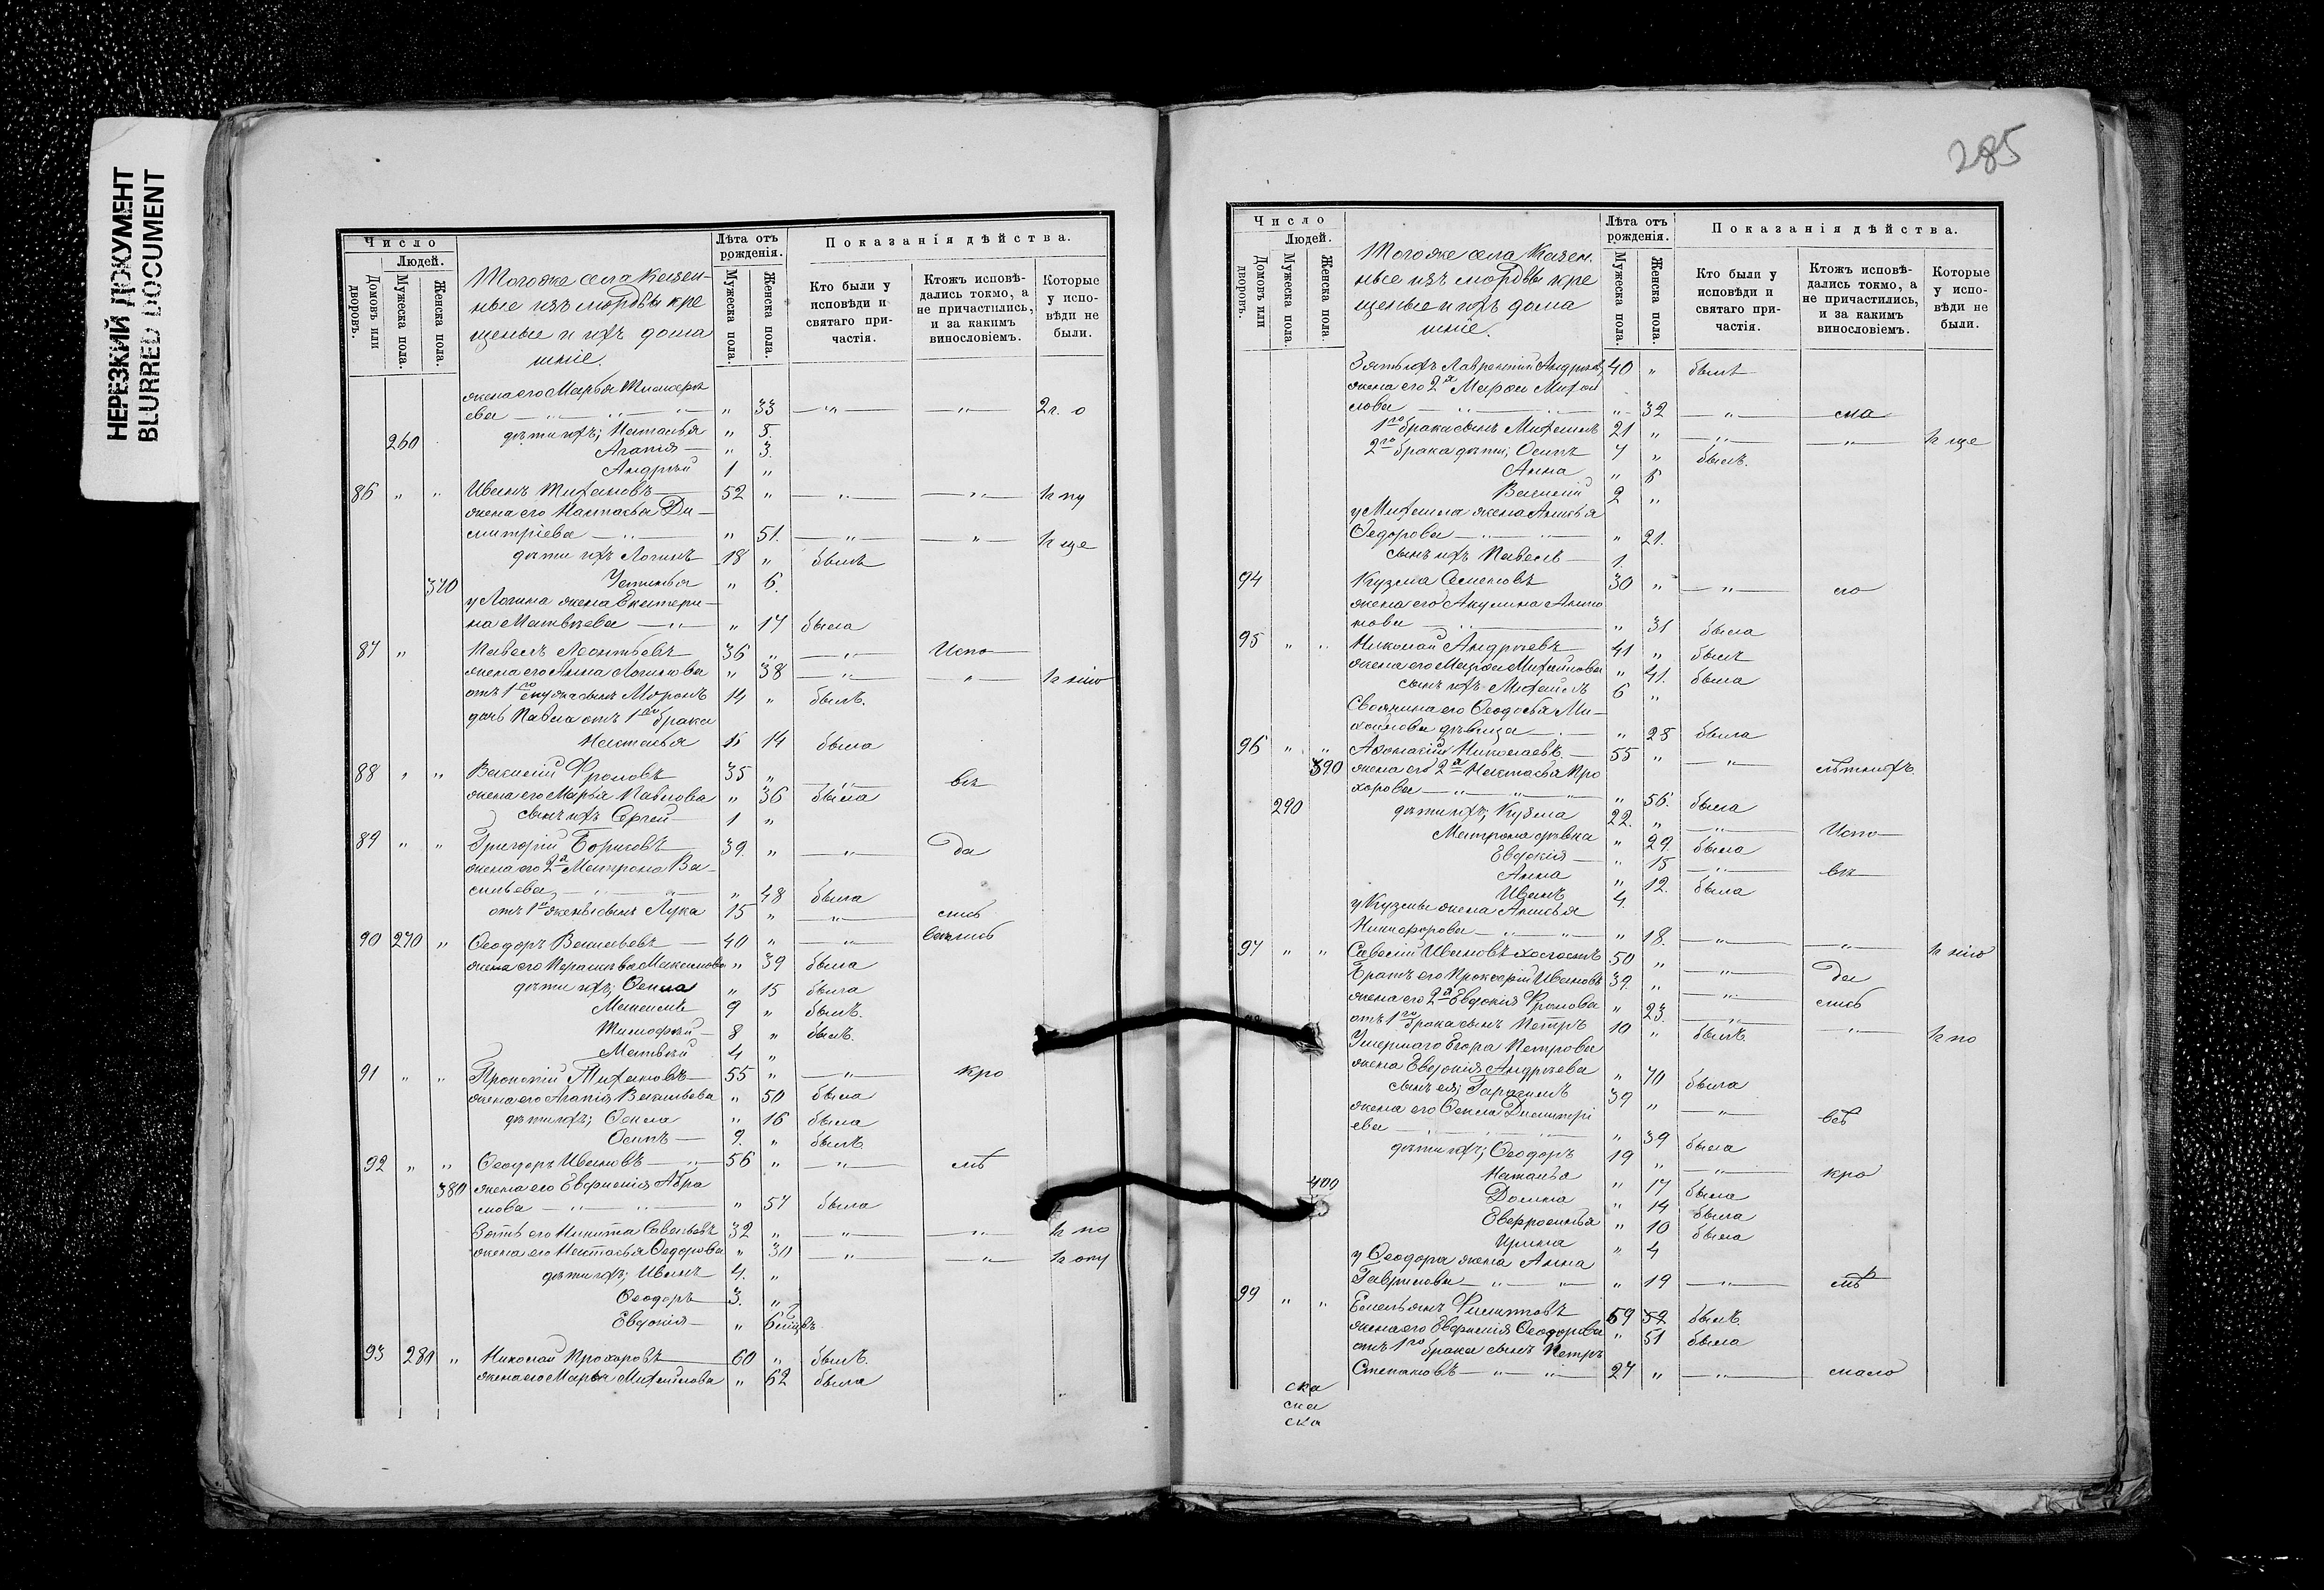 НЕРЕЗКИЙ ДОКУМЕНТ
BLURRED DOCUMENT
Число
Людей.
Домовъ или дворовъ.
Мужеска пола.
Женска пола.
Тогоже села Казен-
ные изъ мордвы кре
щеные и ихъ дома
шніе.
Лѣта отъ рожденія.
Мужеска пола.
Женска пола.
Показанія дѣйства.
Кто были у исповѣди и святаго при-частія.
Ктожъ исповѣ-дались токмо, а не причастились, и за какимъ винословіемъ.
Которые у испо-вѣди не были.
жена его Марья Тимофе
ева — " — " — " 33 — " — " — 2г. о
260 дѣти ихъ; Наталья " 5.
Агапія — " 3.
Андрей 1 "
86 " " Иванъ Тихановъ 52 " — " — " —
жена его Настасья Ди-
митріева — " — " 51. — " — " —
дѣти ихъ Логинъ 18 " былъ
370 Устинья " 6.
у Логина жена Екатери-
на Матвѣева — " — " 17 была
87 " Павелъ Леонтьевъ 36 " — " — Испо
жена его Анна Логинова " 38 — " — " —
отъ 1го мужа сынъ Миронъ 14 " былъ.
дочь Павла отъ 1го брака
Настасья 14 была
88 " " Василій Фроловъ 35 " — " — вѣ
жена его Марья Павлова " 36 была
сынъ ихъ Сергѣй 1 "
89 " " Григорій Борисовъ 39. " — " — да
жена его 2я Матрона Ва-
сильева — " — " — " 48 была
отъ 1й жены сынъ Лука 15 " — " — лись
90 270 " Ѳеодоръ Васильевъ — 40 " — " —
жена его Параскева Максимова " 39 была
дѣти ихъ; Ѳекла " 15 была
9 " былъ.
Тимофей 8 " былъ.
Матвей 4 "
91 " " Тихановъ 55 " — " — кро
жена его Агапія Васильева " 50 была
дѣти ихъ; Ѳекла " 16 была
Осипъ — 9. " былъ.
92 " " Ѳеодоръ Ивановъ — 56 " — " — мѣ
380 жена его Евфимія Абра
мова — " — " — " 57 была
Зять его Никита Савельевъ 32 " — " — " — по
жена его Настасья Ѳедорова " 30 — " — " —
дѣти ихъ; Иванъ 4. "
Ѳеодоръ 3. "
Евдокія — "
93 280 " Николай Прохоровъ 60 " былъ.
жена его Марья Михайлова " 62 была
285
Число
Людей.
Домовъ или дворовъ.
Мужеска пола.
Женска пола.
Тогоже села Казен.
ные изъ мордвы кре
щеные и ихъ дома
шніе.
Лѣта отъ рожденія.
Мужеска пола.
Женска пола.
Показанія дѣйства.
Кто были у исповѣди и святаго при-частія.
Ктожъ исповѣ-дались токмо, а не причастились, и за какимъ винословіемъ.
Которые у испо-вѣди не были.
Зять ихъ Лаврентій 40 " былъ
жена его 2я Марья Михай
лова — " — " 32 — " — ска
1го брака сынъ Михаилъ 21 " — " — " —
2го брака дѣти; Осипъ 7 " былъ.
Анна " 5
Василій 2 "
у Михаила жена Анисья
Ѳедорова — " — " — " 21.
сынъ ихъ Павелъ — 1.
94 Кузма Семеновъ 30 " — " — го
жена его Акулина Анто
нова — " 31 была
95 " " Николай Андреевъ 41 " былъ
жена его Марья Михайлова " 41. была
сынъ ихъ Михаилъ 6 "
его Ѳеодосья Ми-
хайлова дѣвица — " 28 была
96 " " Николаевъ — 55 " — " —
390 жена его 2я Настасья Про
хорова — " — " — " 56. была
290 дѣти ихъ; Кузма 22. " — " — Испо
Матрона дѣвка " 29. была
Евдокія " 15 — " — вѣ
Анна " 12. была
Иванъ 4.
у Кузмы жена Анисья
Никифорова — " — " — " 18. — " — " —
97 " " Савелій Ивановъ холостъ 50 " — " — да
Братъ его Прокофій Ивановъ 39. " — " — лись
жена его 2я Евдокія Фролова " 23. — " — " — по
отъ 1го брака сынъ Петръ 10 " былъ.
Умершаго Егора Петрова
жена Евдокія Андреева " 70 была
сынъ ея; Гарасимъ 39 " — " — всѣ
жена его Ѳекла Дмитрі
ева — " — " — " 39 была
дѣти ихъ; Ѳеодоръ 19 " — " — кро
400 Наталья " 17 была
Домна " 14 была
Евфросинья " 10 была
Ирина " 4
у Ѳеодора жена Анна
Гаврилова — " — " — " 19 — " — мѣ
99 " " Емельянъ Филиповъ 59 52 былъ.
жена его Евфимія Ѳеодорова " 51 была
отъ 1го брака сынъ Петръ
Степановъ — " — " — 27 " — " — мало
ска
ска
ска